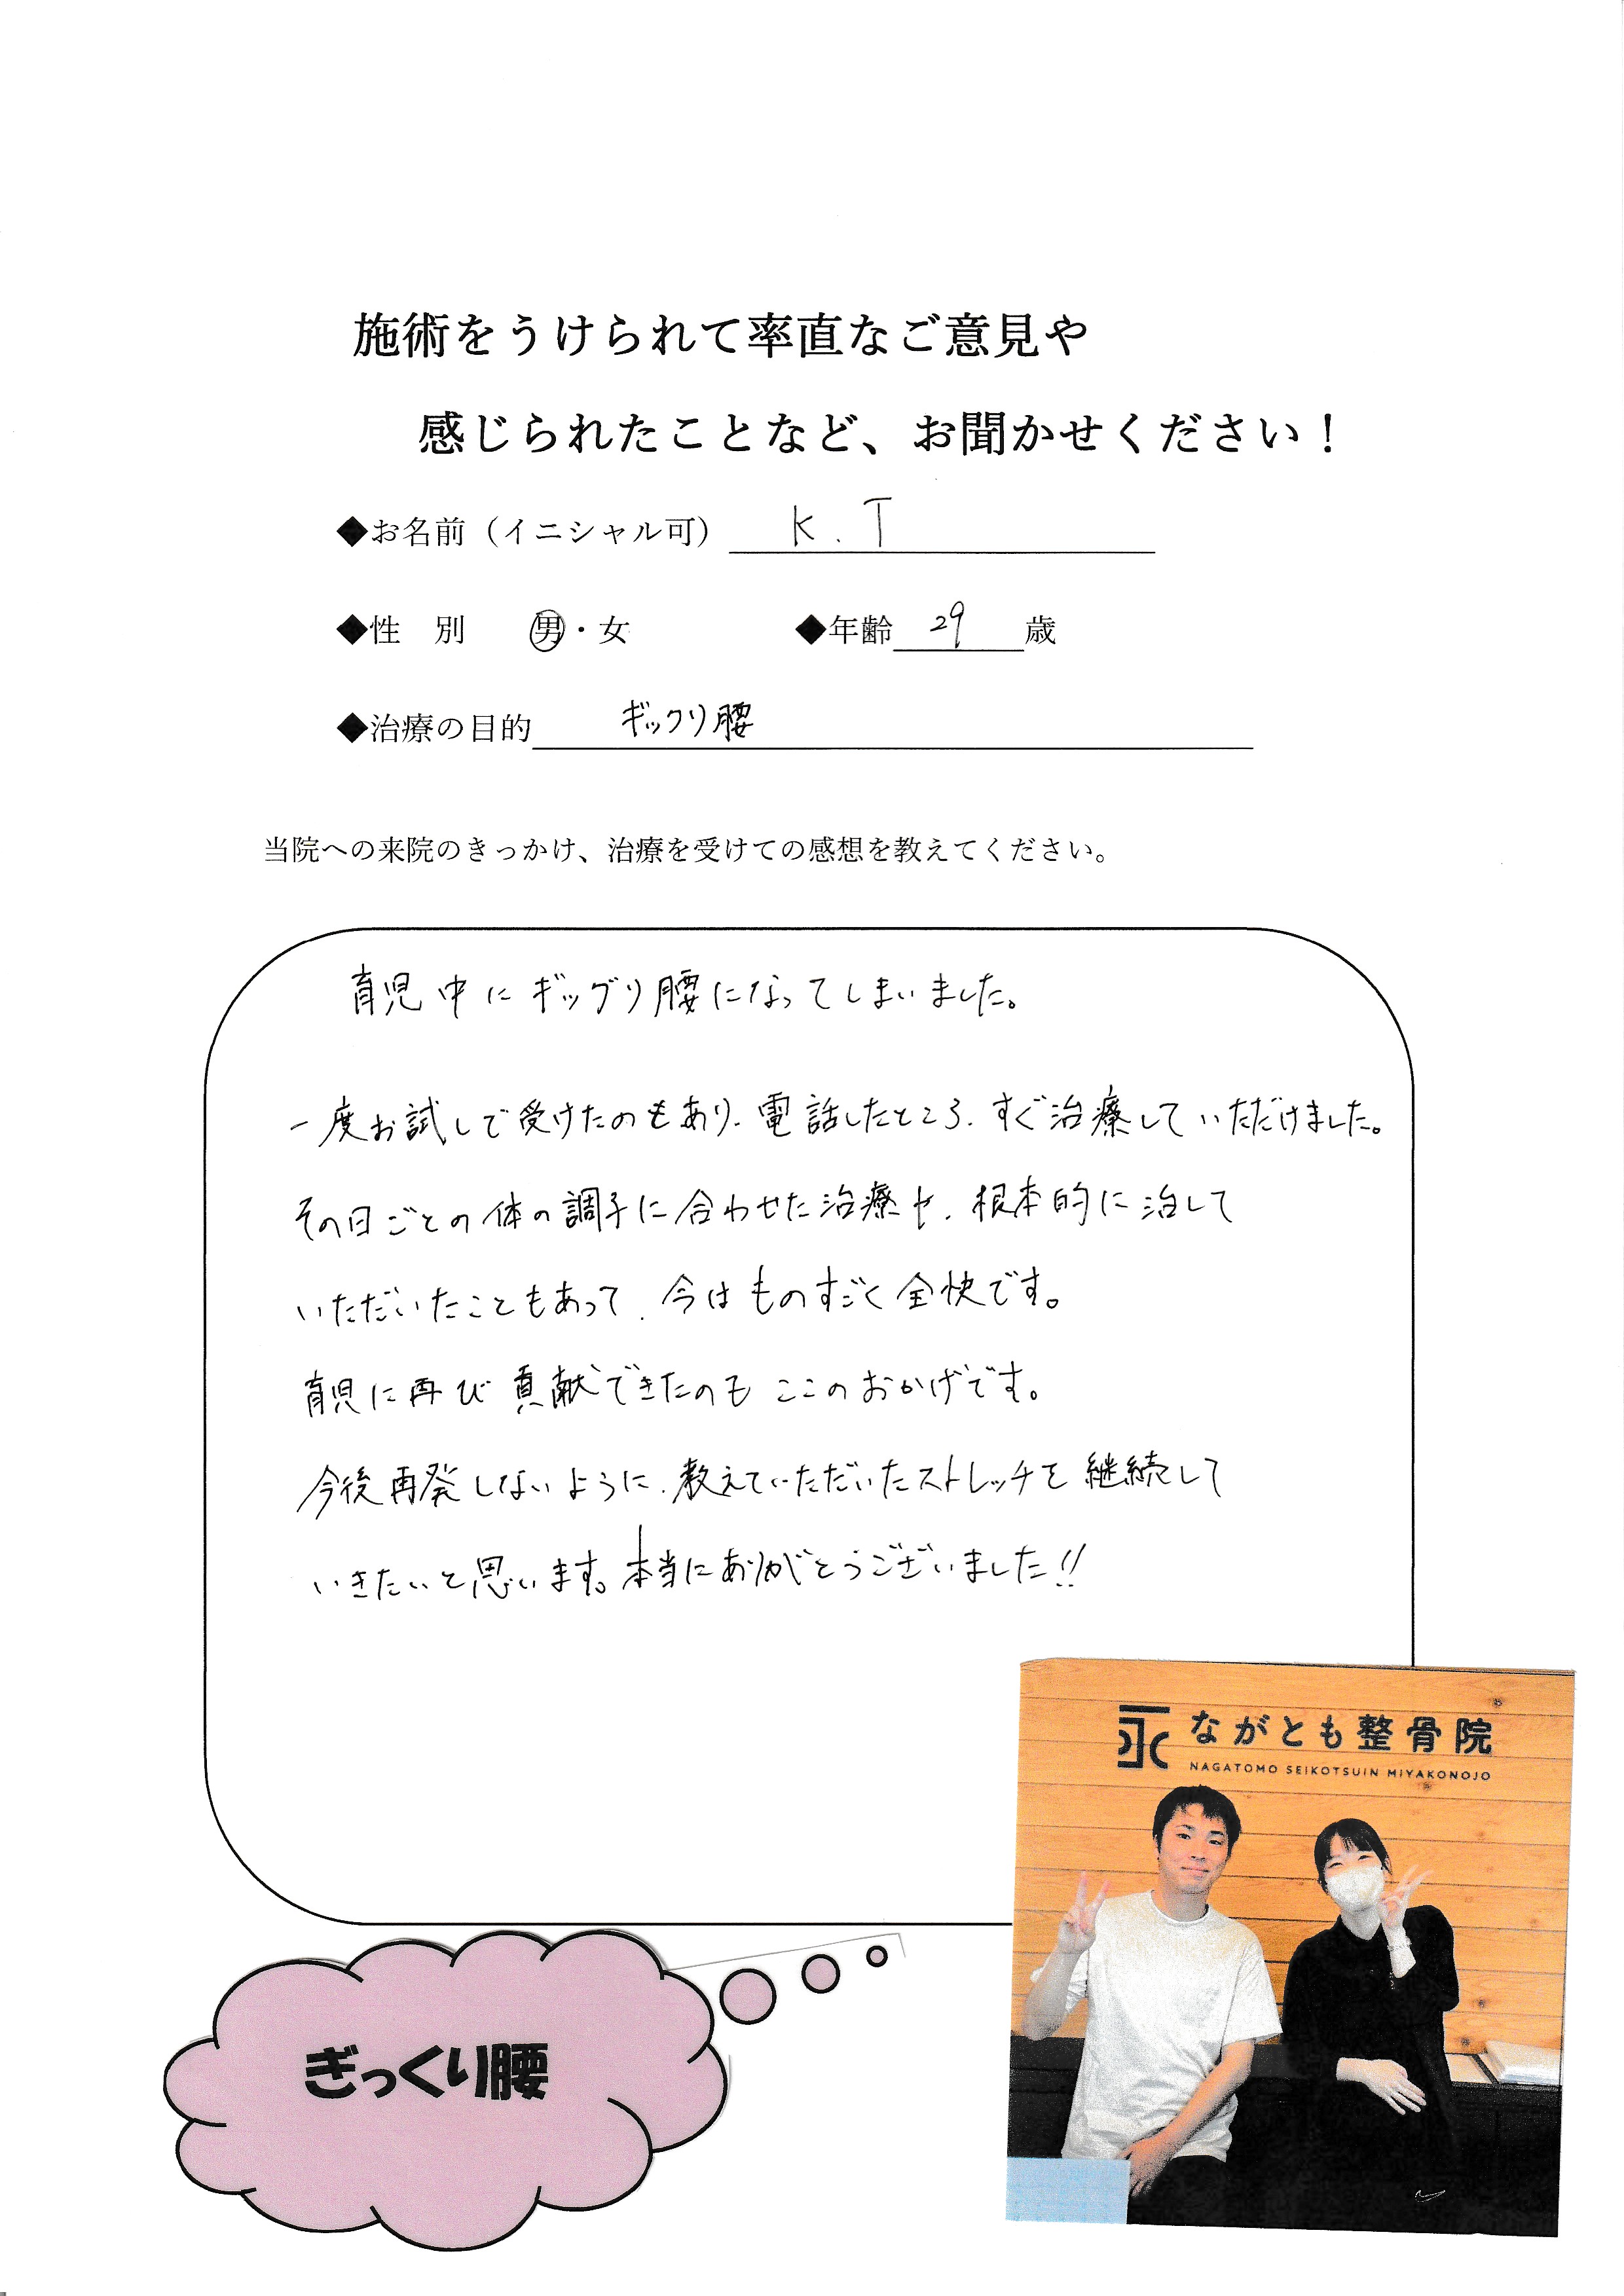 施術をうけられて率直なご意見や
感じられたことなど、お聞かせください！
◆お名前（イニシャル可） K.T
◆性　別　男・女　◆年齢 29 歳
◆治療の目的 ギックリ腰
当院への来院のきっかけ、治療を受けての感想を教えてください。
育児中にギックリ腰になってしまいました。
一度お試しで受けたのもあり、電話したところ、すぐ治療していただけました。
その日ごとの体の調子に合わせた治療や、根本的に治して
いただいたこともあって、今はものすごく全快です。
育児に再び貢献できたのもここのおかげです。
今後再発しないように、教えていただいたストレッチを継続して
いきたいと思います。本当にありがとうございました!!
ながとも整骨院
NAGATOMO SEIKOTSUIN MIYAKONOJO
ぎっくり腰